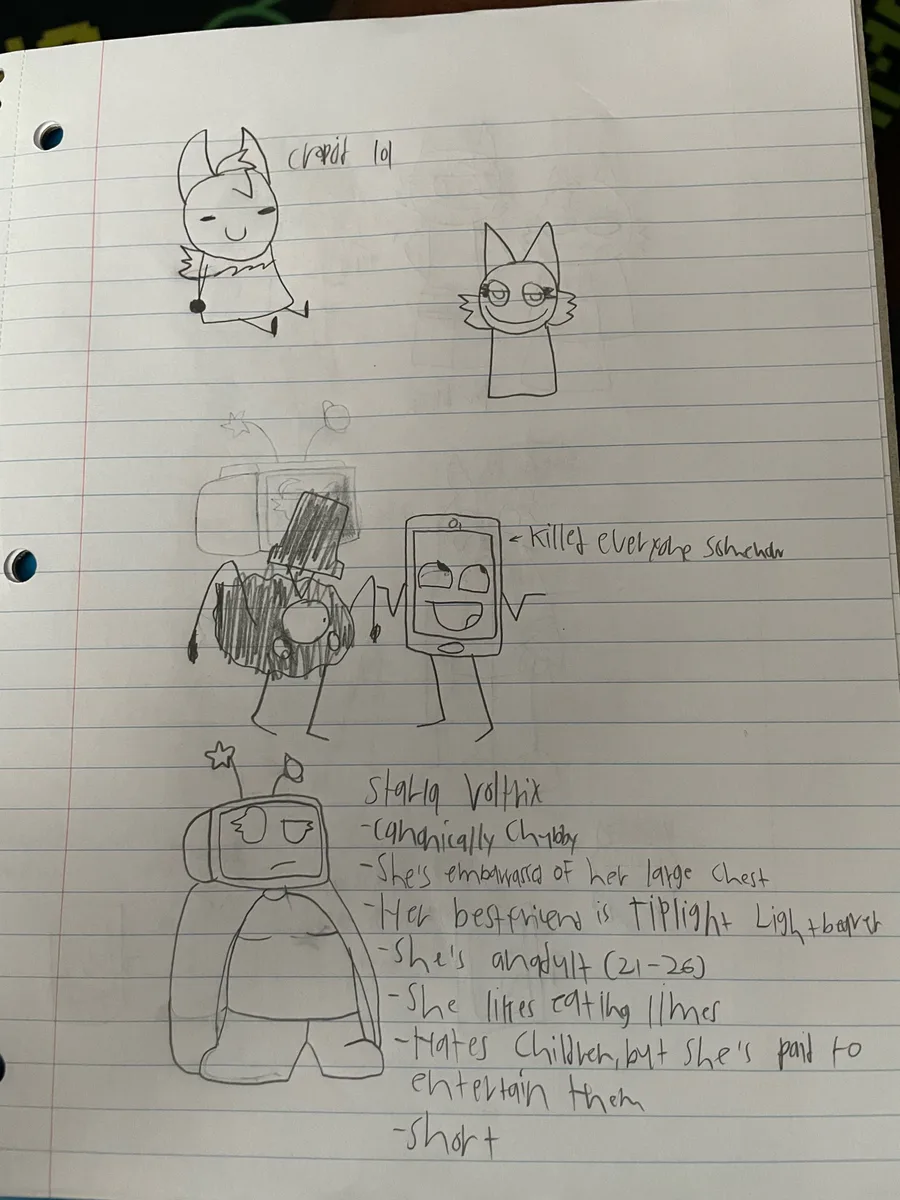 lol
← Killed everyone somehow
Starla Voltrix
-Canonically Chubby
-She's embarrassed of her large chest
-Her bestfriend is Tiplight Lightbearer
-She's an adult (21-26)
-She likes eating limes
-Hates Children, but she's paid to
entertain them
-Short